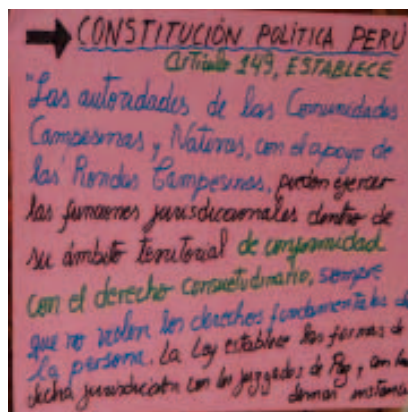 CONSTITUCIÓN POLÍTICA PERÚ
Artículo 149, ESTABLECE
"Las autoridades de las Comunidades
Campesinas y Nativas, con el apoyo de
las Rondas Campesinas, pueden ejercer
las funciones jurisdiccionales dentro de
su ámbito territorial de conformidad
con el derecho consuetudinario, siempre
que no violen los derechos fundamentales de
la persona. La Ley establece las formas de
dicha jurisdicción con los juzgados de Paz, y con las
demás instancia